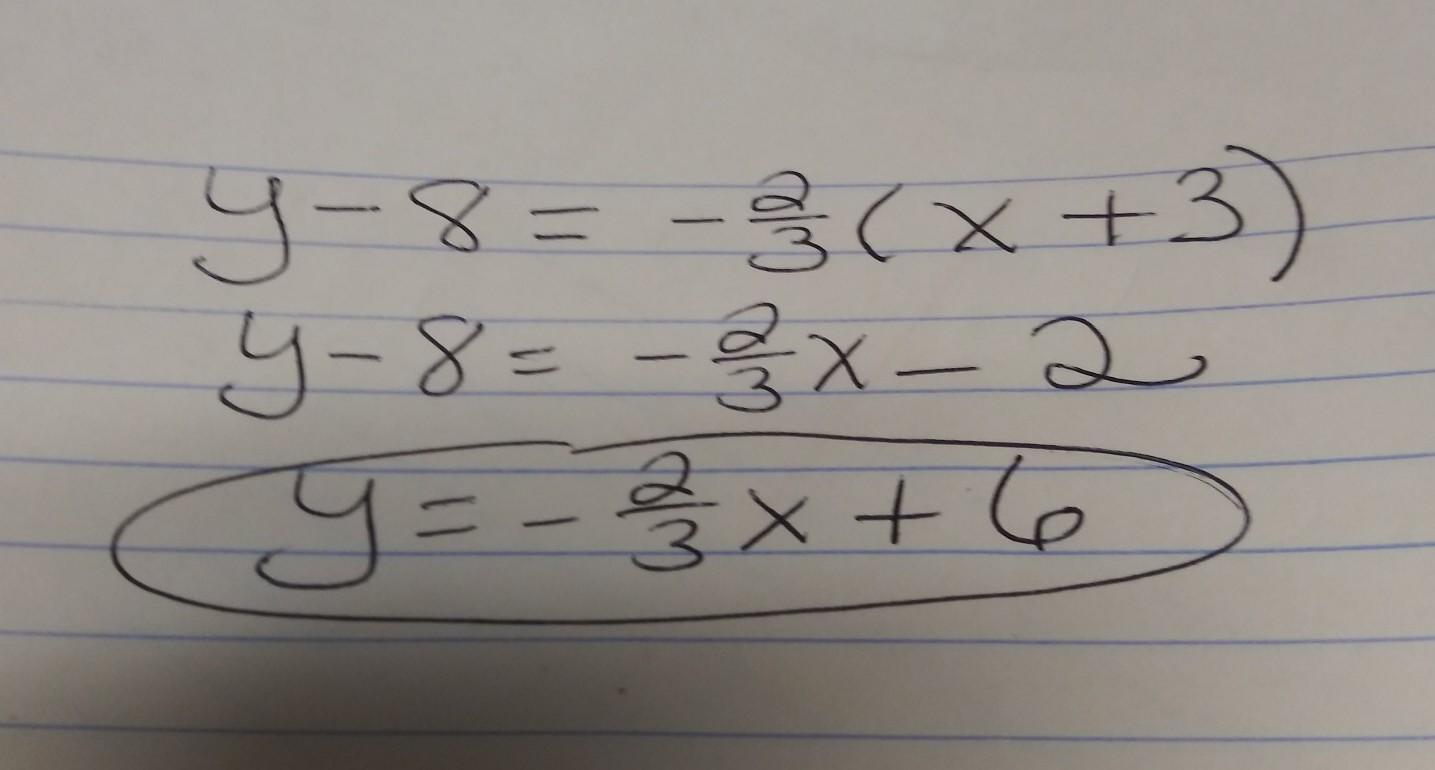 y - 8 = - 2/3 ( x + 3 )
y - 8 = - 2/3 x - 2
y = - 2/3 x + 6